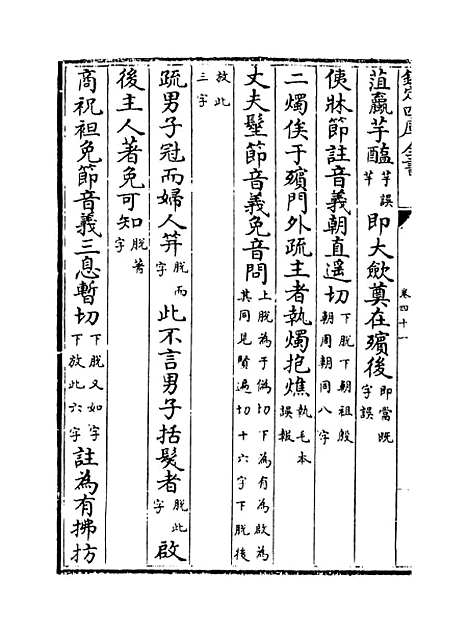 欽定四庫全書
卷四十一
菹蠃芋醢芋誤芊即大斂奠在殯後即當既字誤
侇牀節註音義朝直遥切下脱下朝祖殷朝周朝同八字
二燭俟于殯門外疏主者執燭抱燋執毛本誤報
丈夫髽節音義免音問上脱為于偽切下為有為啟為其同見賢遍切十六字下脱後
放此三字
疏男子冠而婦人笄脱而字此不言男子括髮者脱此字啟
後主人著免可知脱著字
商祝袒免節音義三息暫切下脱又如字下放此六字註為有拂扐